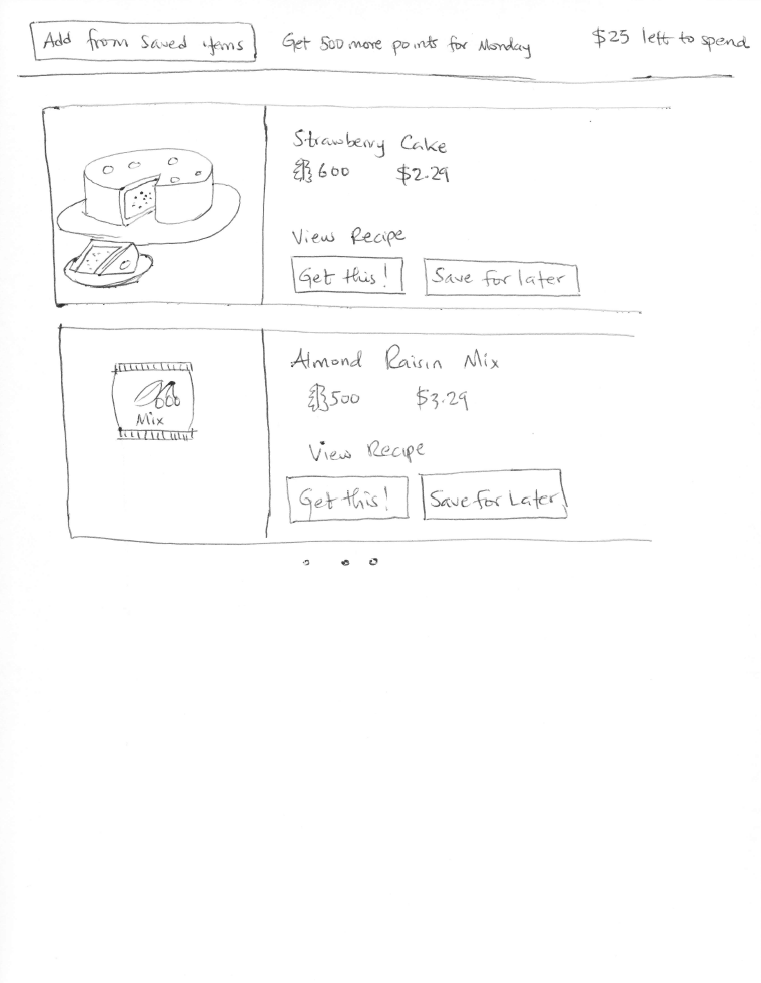 Add from Saved items Get 500 more points for Monday $25 left to spend
Strawberry Cake
600 $2.29
View Recipe
Get this! Save for later
Almond Raisin Mix
500 $3.29
Mix
View Recipe
Get this! Save for Later